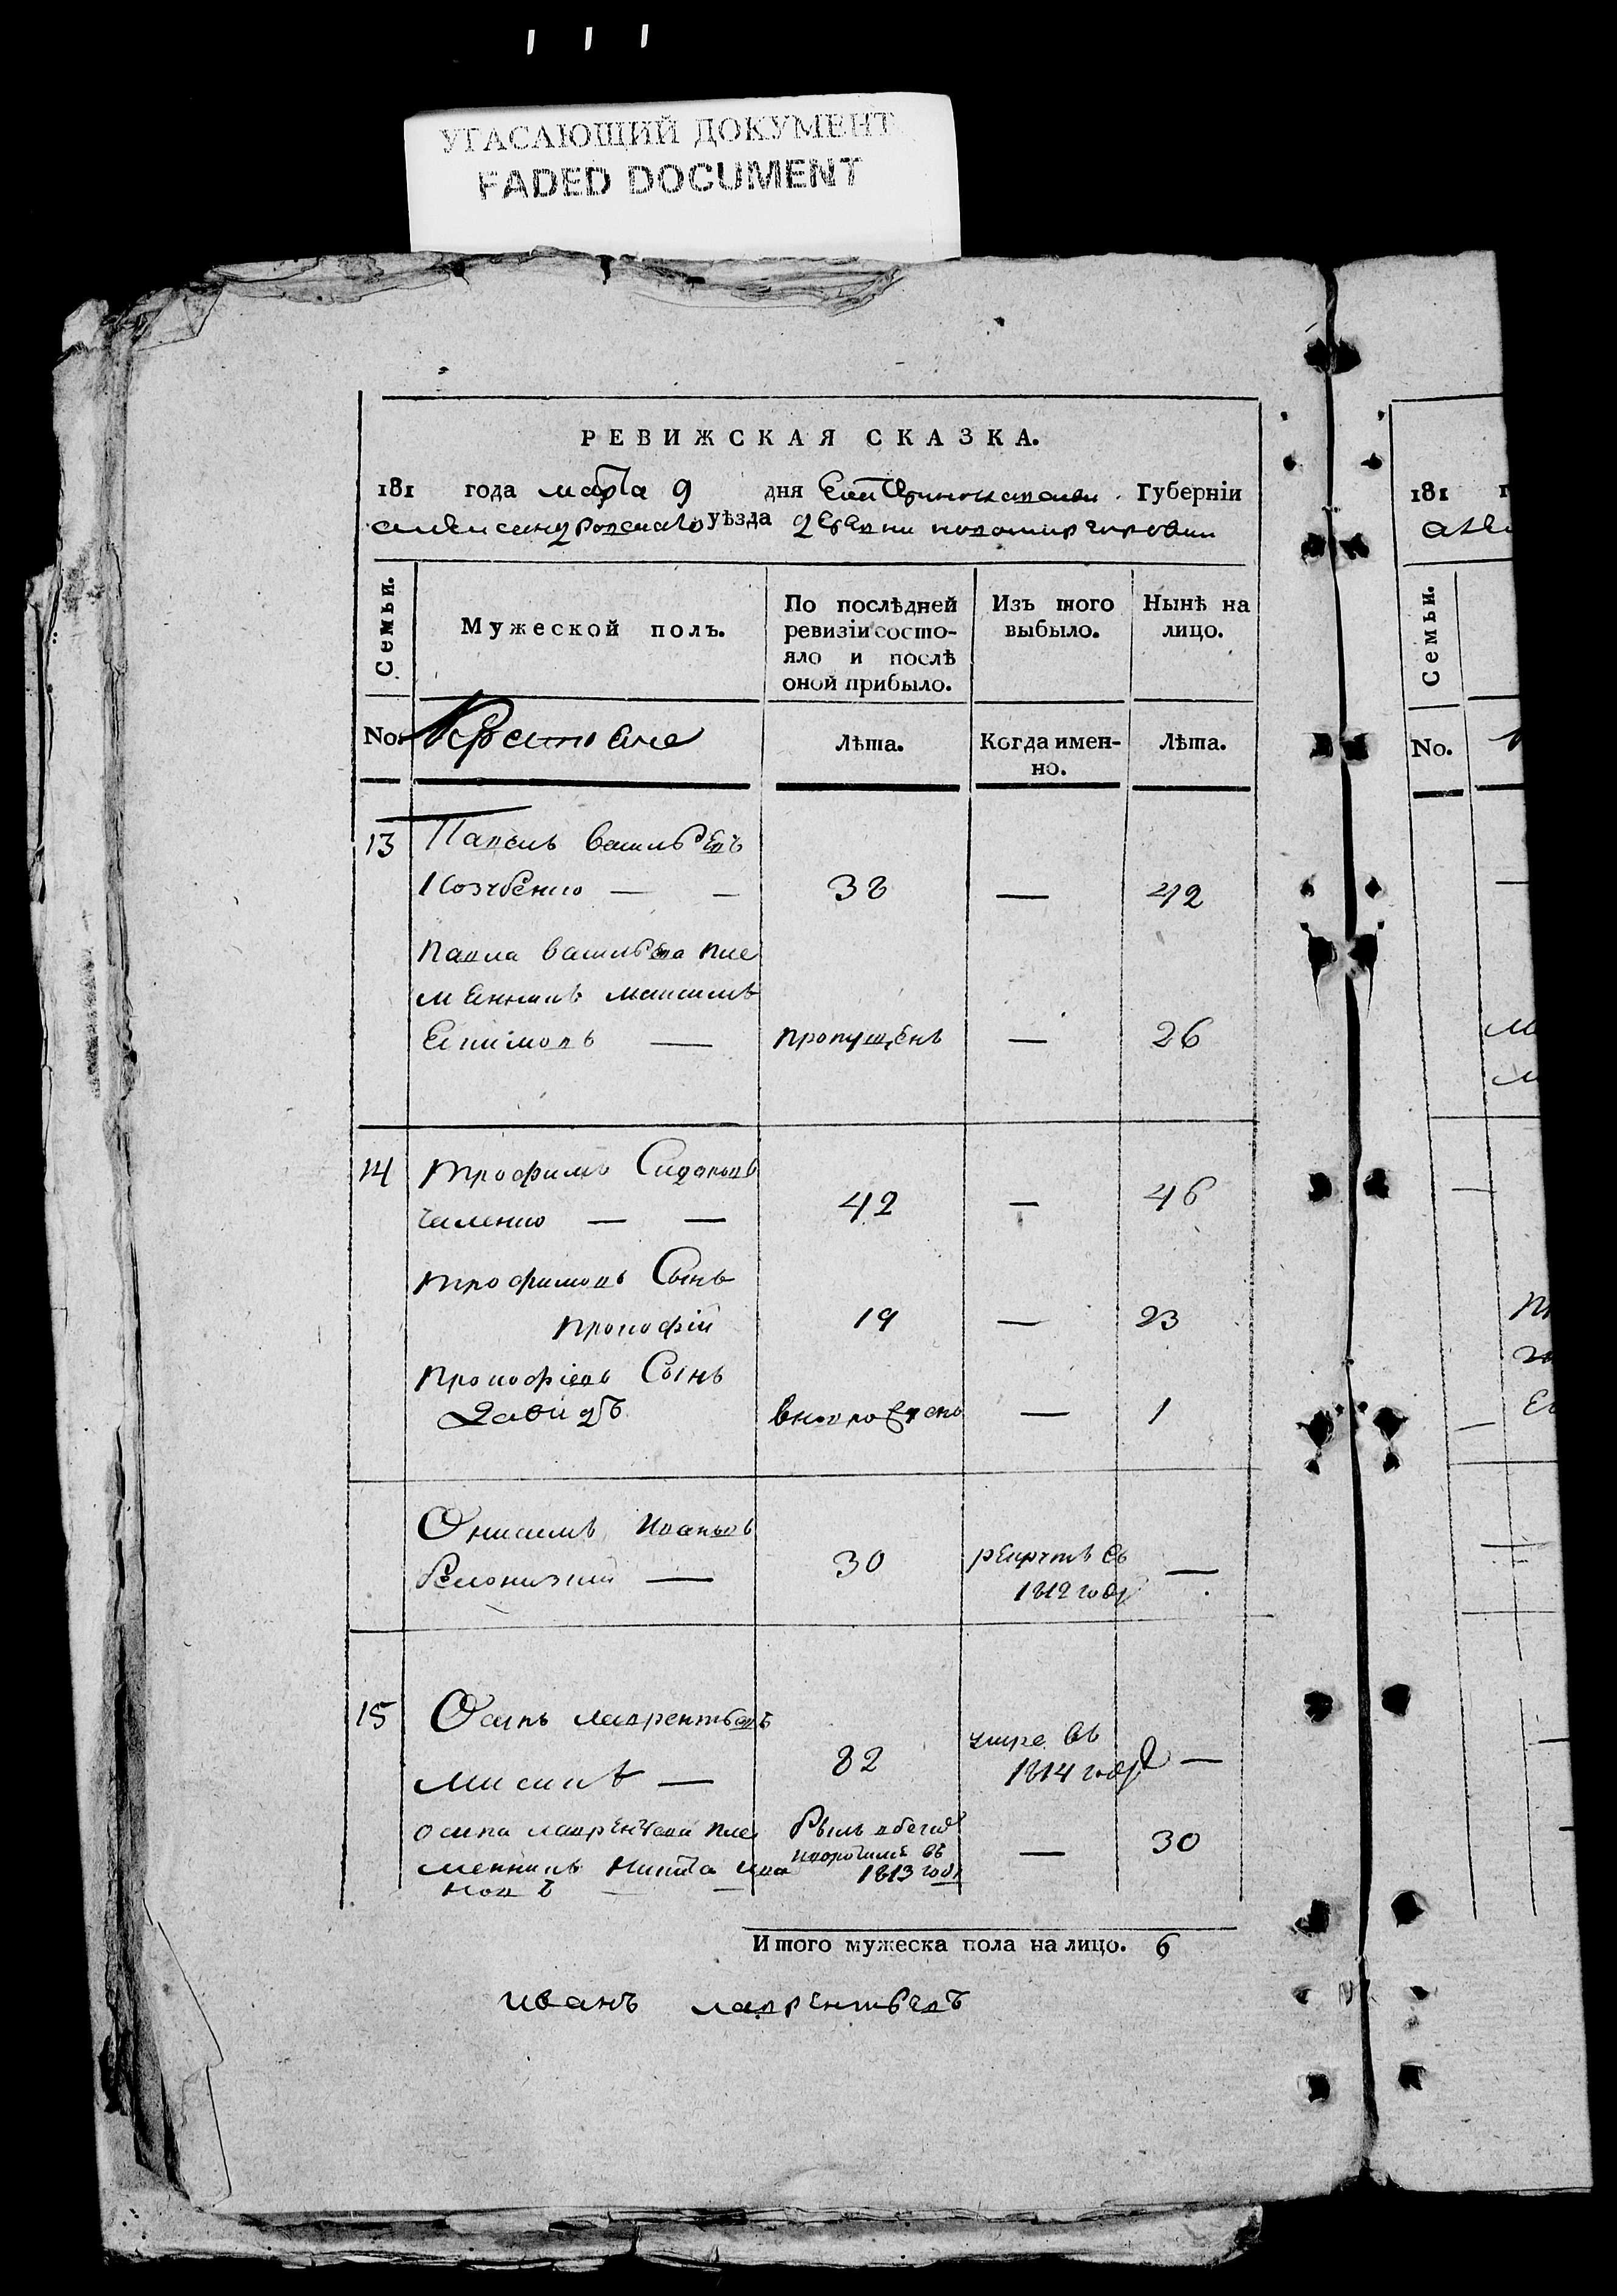 УГАСАЮЩИЙ ДОКУМЕНТ
FADED DOCUMENT
РЕВИЖСКАЯ СКАЗКА.
181 года марта 9 дня Екатеринославской Губерніи
александровскаго уѣзда деревни
Семьи.
Мужеской полъ.
По послѣдней ревизіи состо-
яло и послѣ
оной прибыло.
Изъ того
выбыло.
Нынѣ на
лицо.
No. Крестьяне
Лѣта.
Когда имен-
но.
Лѣта.
13 Павелъ васильевъ
38 — 42
Павла васильева пле
менникъ максимъ
Екимовъ — пропущенъ — 26
14 трофимъ Сидоровъ
— — 42 — 46
трофимовъ Сынъ
прокофій 19 — 23
прокофіевъ Сынъ
Давидъ вноворожденъ — 1
Онисимъ Ивановъ
— 30 рекрутъ въ
1812 году —
15 Осипъ лаврентьевъ
82 умре въ
1814 году —
осипа лаврентьева пле
менникъ Никита ива
новъ — — Былъ въбегах
въ
1813 году — 30
Итого мужеска пола на лицо. 6
иванъ лаврентьевъ
181
No.
Семьи.